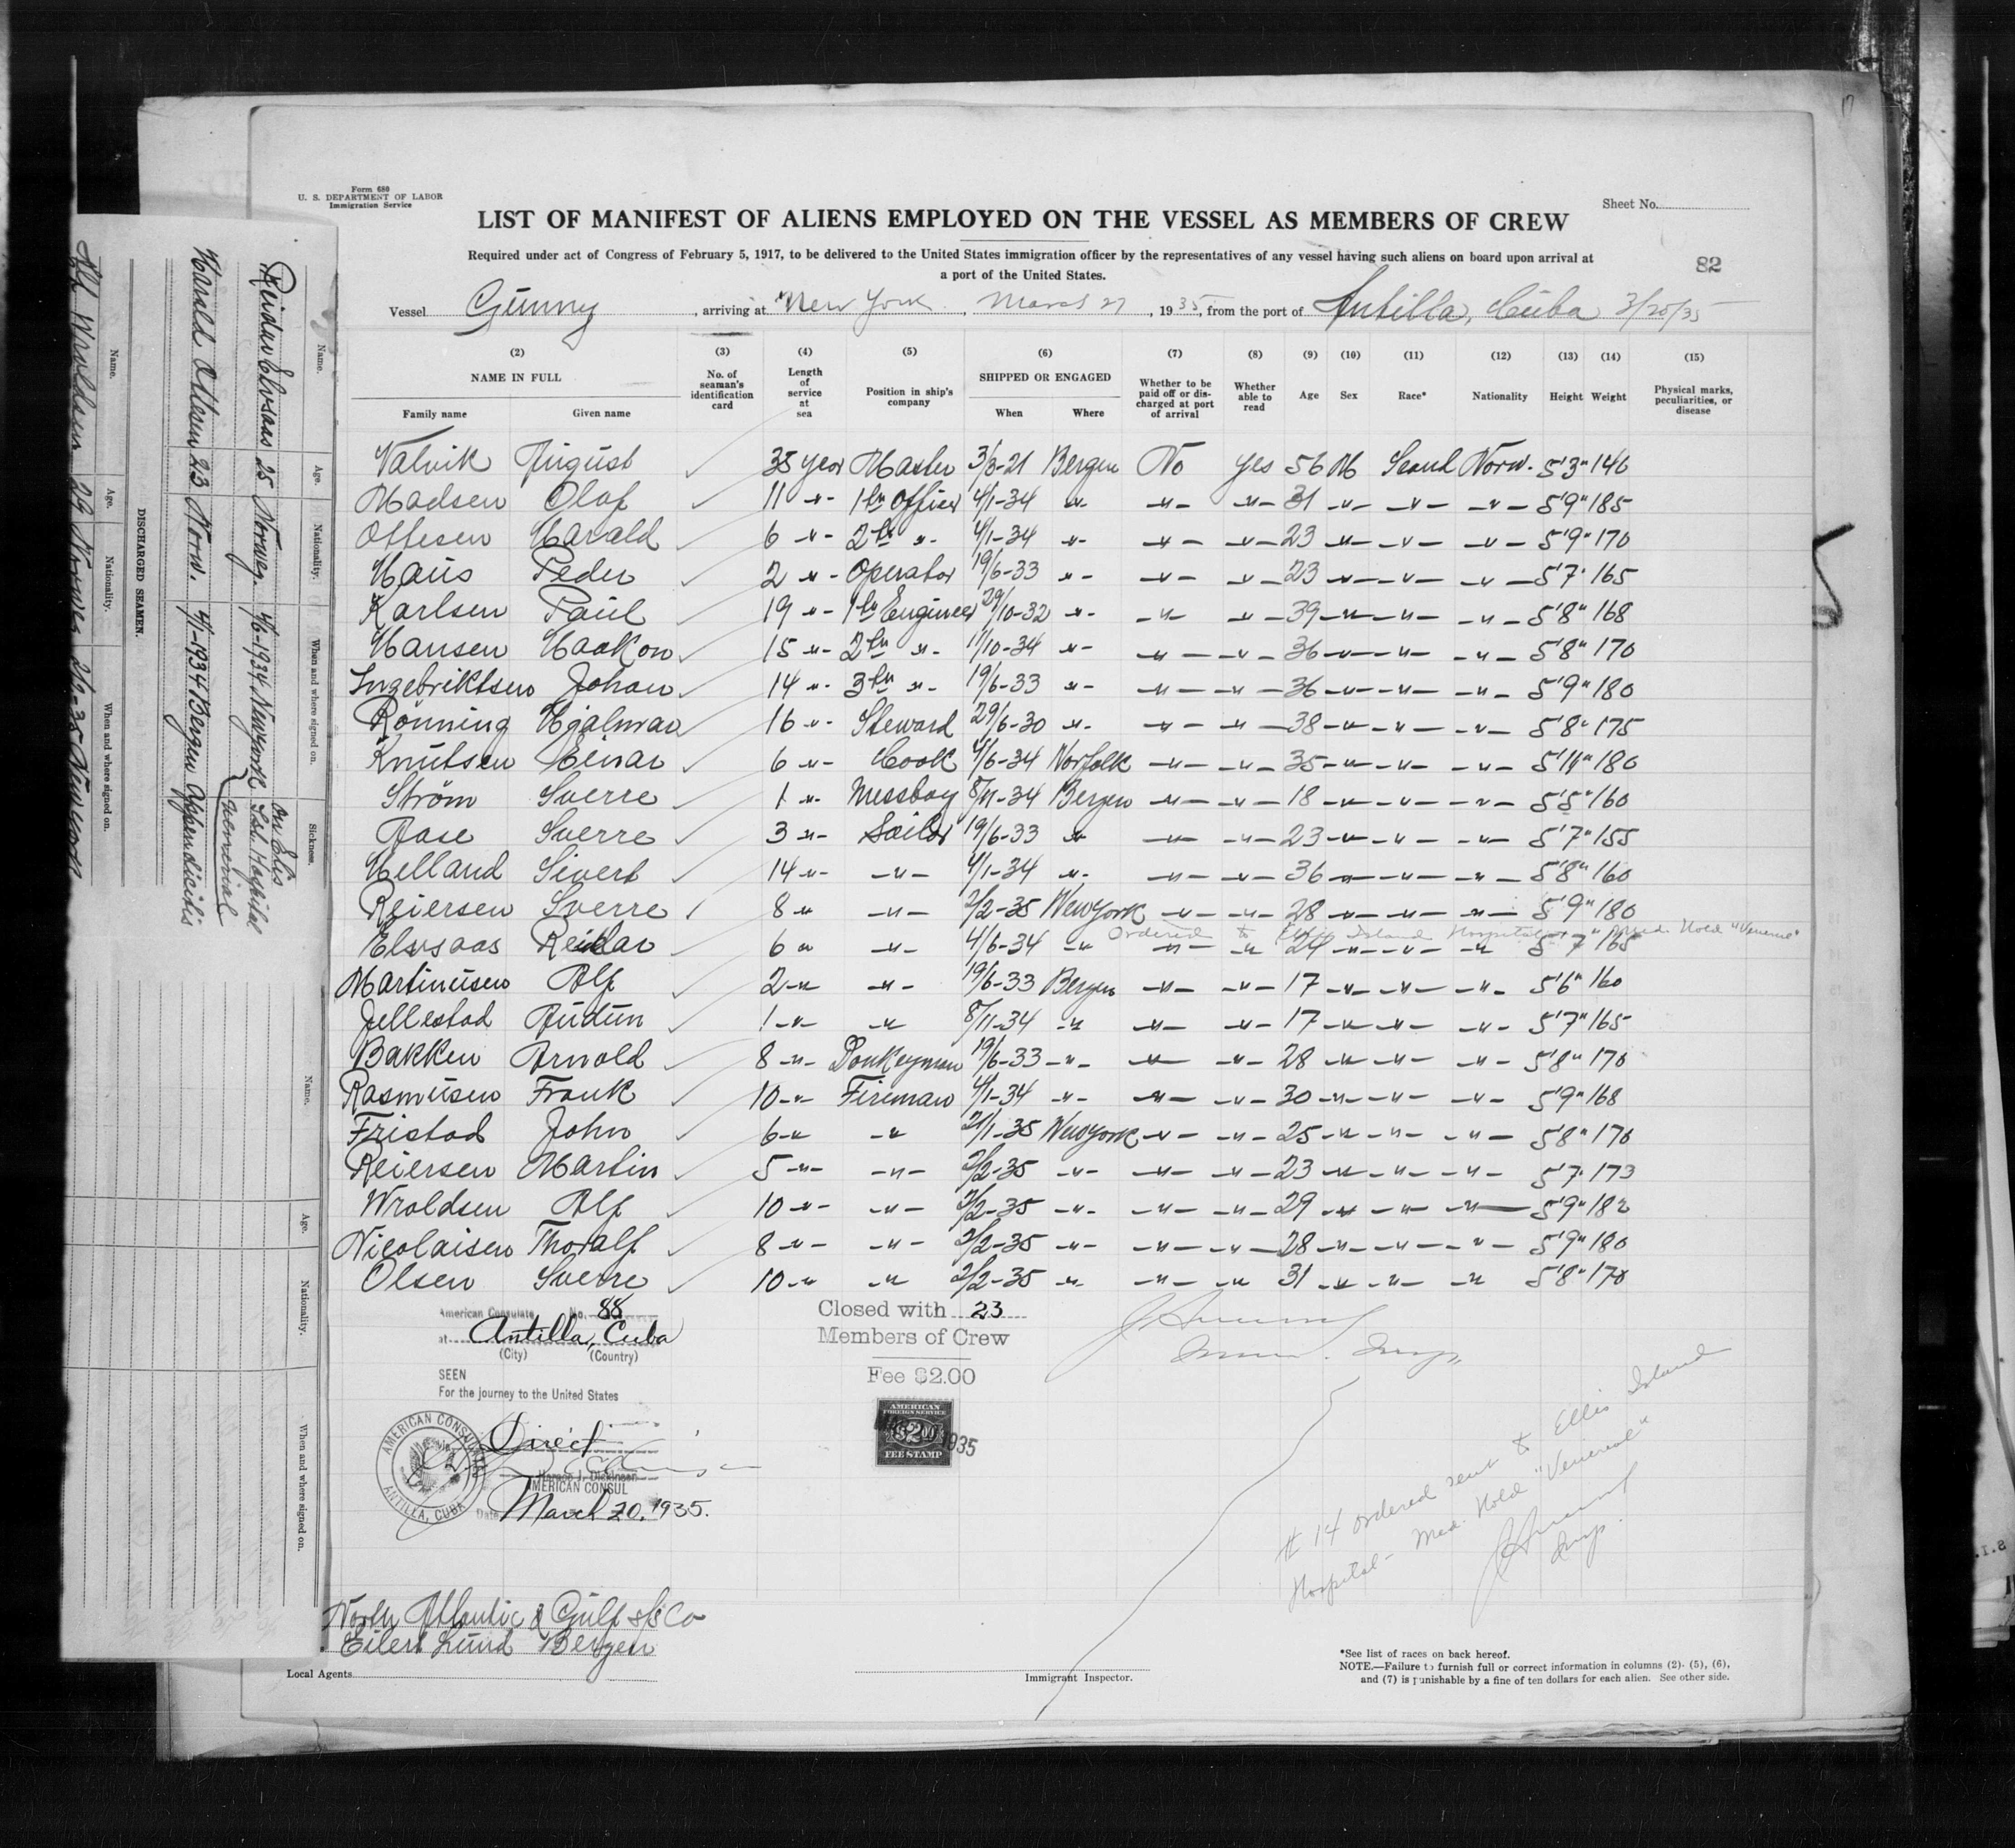 17
Form 680
U. S. DEPARTMENT OF LABOR
Immigration Service
Sheet No.
LIST OF MANIFEST OF ALIENS EMPLOYED ON THE VESSEL AS MEMBERS OF CREW
Required under act of Congress of February 5, 1917, to be delivered to the United States immigration officer by the representatives of any vessel having such aliens on board upon arrival at
a port of the United States.
82
Vessel Gunny, arriving at New York, March 27, 1935, from the port of Antilla, Cuba 3/20/35
(2) (3) (4) (5) (6) (7) (8) (9) (10) (11) (12) (13) (14) (15)
NAME IN FULL No. of seaman's identification card Length of service at sea Position in ship's company SHIPPED OR ENGAGED Whether to be paid off or discharged at port of arrival Whether able to read Age Sex Race* Nationality Height Weight Physical marks, peculiarities, or disease
Family name Given name When Where
Valvik August 38 year Master 3/3-21 Bergen No yes 56 M Scand Norw. 5'3" 146
Madsen Olaf 11 -"- 1st Officer 4/1-34 -"- -"- -"- 31 -"- -"- -"- 5'9" 185
Ottesen Harald 6 -"- 2th -"- 4/1-34 -"- -"- -"- 23 -"- -"- -"- 5'9" 170
Haus Peder 2 -"- Operator 19/6-33 -"- -"- -"- 23 -"- -"- -"- 5'7" 165
Karlsen Paul 19 -"- 1th Engineer 29/10-32 -"- -"- -"- 39 -"- -"- -"- 5'8" 168
Hansen Haakon 15 -"- 2th -"- 11/10-34 -"- -"- -"- 36 -"- -"- -"- 5'8" 170
Ingebriktsen Johan 14 -"- 3th -"- 19/6-33 -"- -"- -"- 36 -"- -"- -"- 5'9" 180
Rönning Hjalmar 16 -"- Steward 29/6-30 -"- -"- -"- 38 -"- -"- -"- 5'8" 175
Knutsen Einar 6 -"- Cook 4/6-34 Norfolk -"- -"- 35 -"- -"- -"- 5'11" 180
Strøm Sverre 1 -"- Messboy 8/11-34 Bergen -"- -"- 18 -"- -"- -"- 5'5" 160
Aase Sverre 3 -"- Sailor 19/6-33 -"- -"- -"- 23 -"- -"- -"- 5'7" 155
Helland Sivert 14 -"- -"- 4/1-34 -"- -"- -"- 36 -"- -"- -"- 5'8" 160
Reiersen Sverre 8 -"- -"- 2/2-35 New York -"- -"- 28 -"- -"- -"- 5'9" 180
Ordered to Ellis Island Hospital Med. Hold "Venereal"
Elvsaas Reidar 6 -"- -"- 4/6-34 -"- -"- -"- 24 -"- -"- -"- 5'7" 165
Martinusen Alf 2 -"- -"- 19/6-33 Bergen -"- -"- 17 -"- -"- -"- 5'6" 160
Jellestad Audun 1 -"- -"- 8/11-34 -"- -"- -"- 17 -"- -"- -"- 5'7" 165
Bakken Arnold 8 -"- Donkeyman 19/6-33 -"- -"- -"- 28 -"- -"- -"- 5'8" 170
Rasmusen Frank 10 -"- Fireman 4/1-34 -"- -"- -"- 30 -"- -"- -"- 5'9" 168
Fristad John 6 -"- -"- 21/1-35 New York -"- -"- 25 -"- -"- -"- 5'8" 170
Reiersen Martin 5 -"- -"- 2/2-35 -"- -"- -"- 23 -"- -"- -"- 5'7" 173
Wroldsen Alf 10 -"- -"- 2/2-35 -"- -"- -"- 29 -"- -"- -"- 5'9" 182
Nicolaisen Thoralf 8 -"- -"- 2/2-35 -"- -"- -"- 28 -"- -"- -"- 5'9" 180
Olsen Sverre 10 -"- -"- 2/2-35 -"- -"- -"- 31 -"- -"- -"- 5'8" 170
American Consulate No. 88
at Antilla, Cuba
(City) (Country)
SEEN
For the journey to the United States
Direct
AMERICAN CONSUL
Date March 20, 1935.
AMERICAN CONSULATE
ANTILLA, CUBA
Closed with 23
Members of Crew
Fee $2.00
AMERICAN
FOREIGN SERVICE
$2.00
FEE STAMP
1935
Imm. Insp.
# 14 ordered sent to Ellis Island
Hospital - Med. Hold "Venereal"
Insp.
North Atlantic & Gulf s/s Co
Eilert Lund Bergen
Local Agents
Immigrant Inspector.
*See list of races on back hereof.
NOTE.—Failure to furnish full or correct information in columns (2), (5), (6),
and (7) is punishable by a fine of ten dollars for each alien. See other side.
DISCHARGED SEAMEN.
Name. Age. Nationality. When and where signed on. Sickness.
Reidar Elvsaas 25 Norweg. 4/6-1934 New York on Elis Isl. Hospital venerial
Harald Ottesen 23 Norw. 4/1-1934 Bergen Appendicitis
Name. Age. Nationality. When and where signed on.
Alf Wroldsen 29 Norweg 2/2-35 New York
Name. Age. Nationality. When and where signed on.